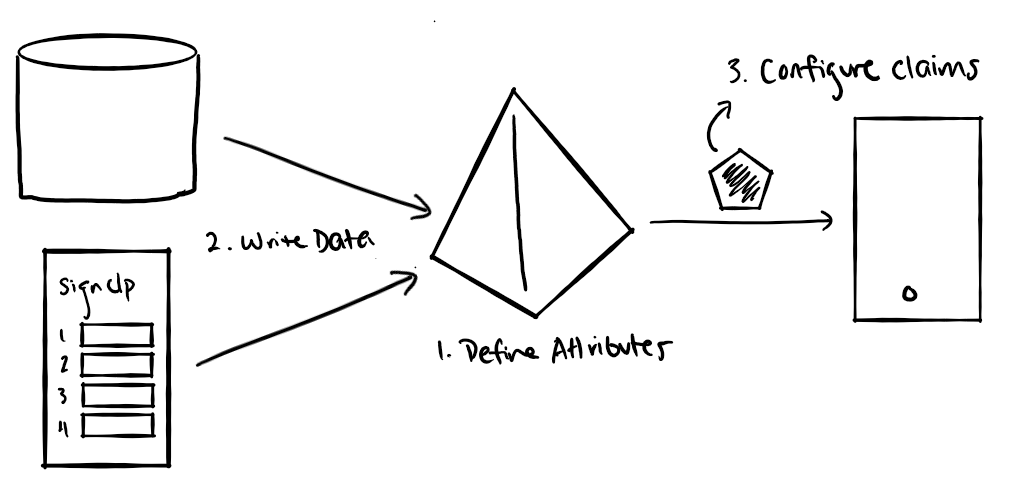 3. Configure claims
2. Write Data
Sign Up
1
2
3
4
1. Define Attributes